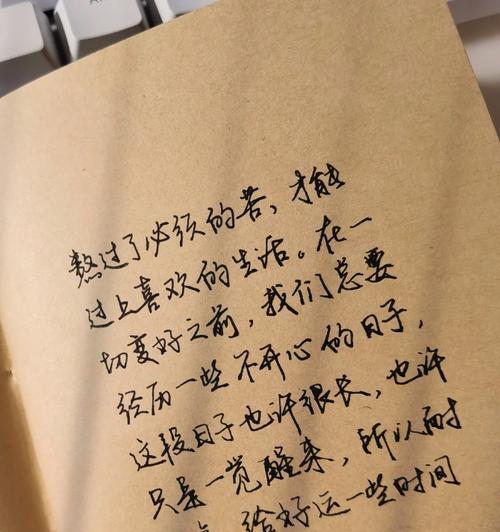 熬过了必须的苦，才能
过上喜欢的生活。在一
切变好之前，我们总要
经历一些不开心的日子，
这段日子也许很长，也许
只是一觉醒来，所以耐
给好运一些时间